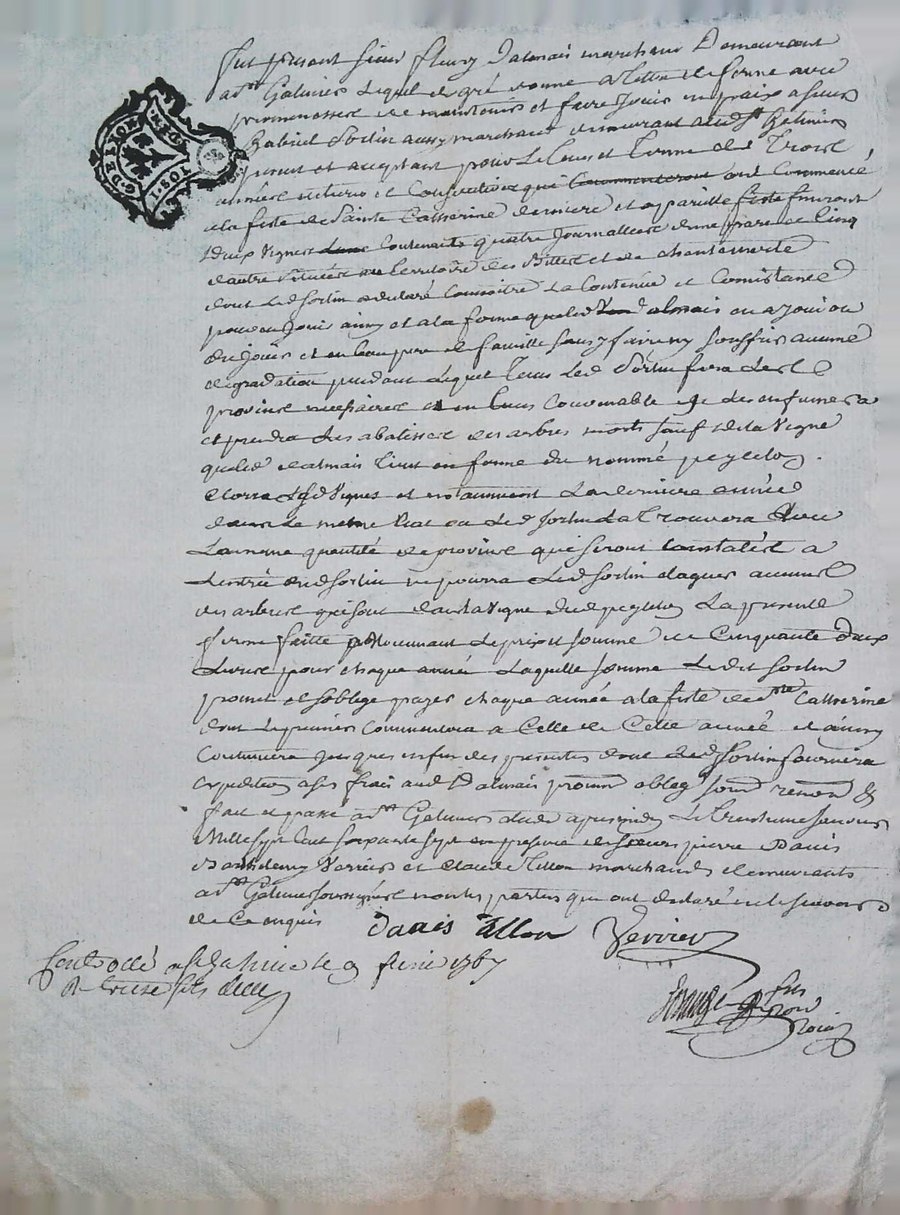 G. DE LYON
DEN
TOS
Fut present sieur fleury Dalmais marchand Demeurant
a St Galmier Lequel de gré donne a titre de ferme avec
promenesse de maintenir et faire Jouir en paix a sieur
Gabriel Sortin aussy marchand demeurant aud. St Galmier
present et acceptant pour Le tems et terme de Trois
années entieres et Consecutives qui Commenceront ont Commencé
a la feste de Sainte Catherine derniere et a pareille feste finiront
Deux vignes Contenants quatre Journallees d'une part et Cinq
d'autre situées au territoire des et de chantemerle
dont Led Sortin a declaré Connoitre La Contenue et Consistance
pour en Jouir ainsy et a la forme que led Dalmais en a Joui ou
du Jouir et en bon pere de famille sans y faire ny souffrir aucune
degradation pendant lequel tems Led Sortin fera Les
provins necessaires et en tems Convenable
et prendra Les des arbres morts sauf de la vigne
que led dalmais tient en ferme du nommé peyleton
Lesd Vignes et notamment La derniere année
dans Le meme Etat ou Led Sortin La trouvera avec
La meme quantité de provins qui seront Constatés a
L'entrée dud Sortin ne pourra Led Sortin elaguer aucuns
des arbres qui sont dans la vigne dud peyleton La presente
ferme faitte moyennant Le prix et somme de Cinquante deux
Livres pour chaque année Laquelle somme Ledit Sortin
promet et s'oblige payer chaque année a la feste de Ste Catherine
dont Le premier Commencera a Celle de Cette année et ainsy
Continuera Jusques en fin des presentes dont Led Sortin fournira
expedition a ses frais aud Dalmais promett oblig soum renon &
fait et passé a St Galmier etude apres midy Le Trentieme Janvier
Mille sept Cent soixante sept en presence de sieurs pierre Danis
Barthelemy Verrier et claude Tillon marchands demeurants
a St Galmier soussignés non les parties qui ont declaré ne le scavoir
de Ce enquis
Danis Tillon Verrier
Controllé a St Galmier le 9 fevrier 1767
R. treize sols